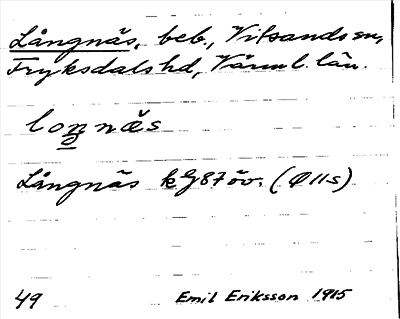 Långnäs, beb., Vitsands sn,
Fryksdals hd, Värml. län.
loŋnäs
Långnäs kG87öv. (Ø11s)
49 Emil Eriksson 1915